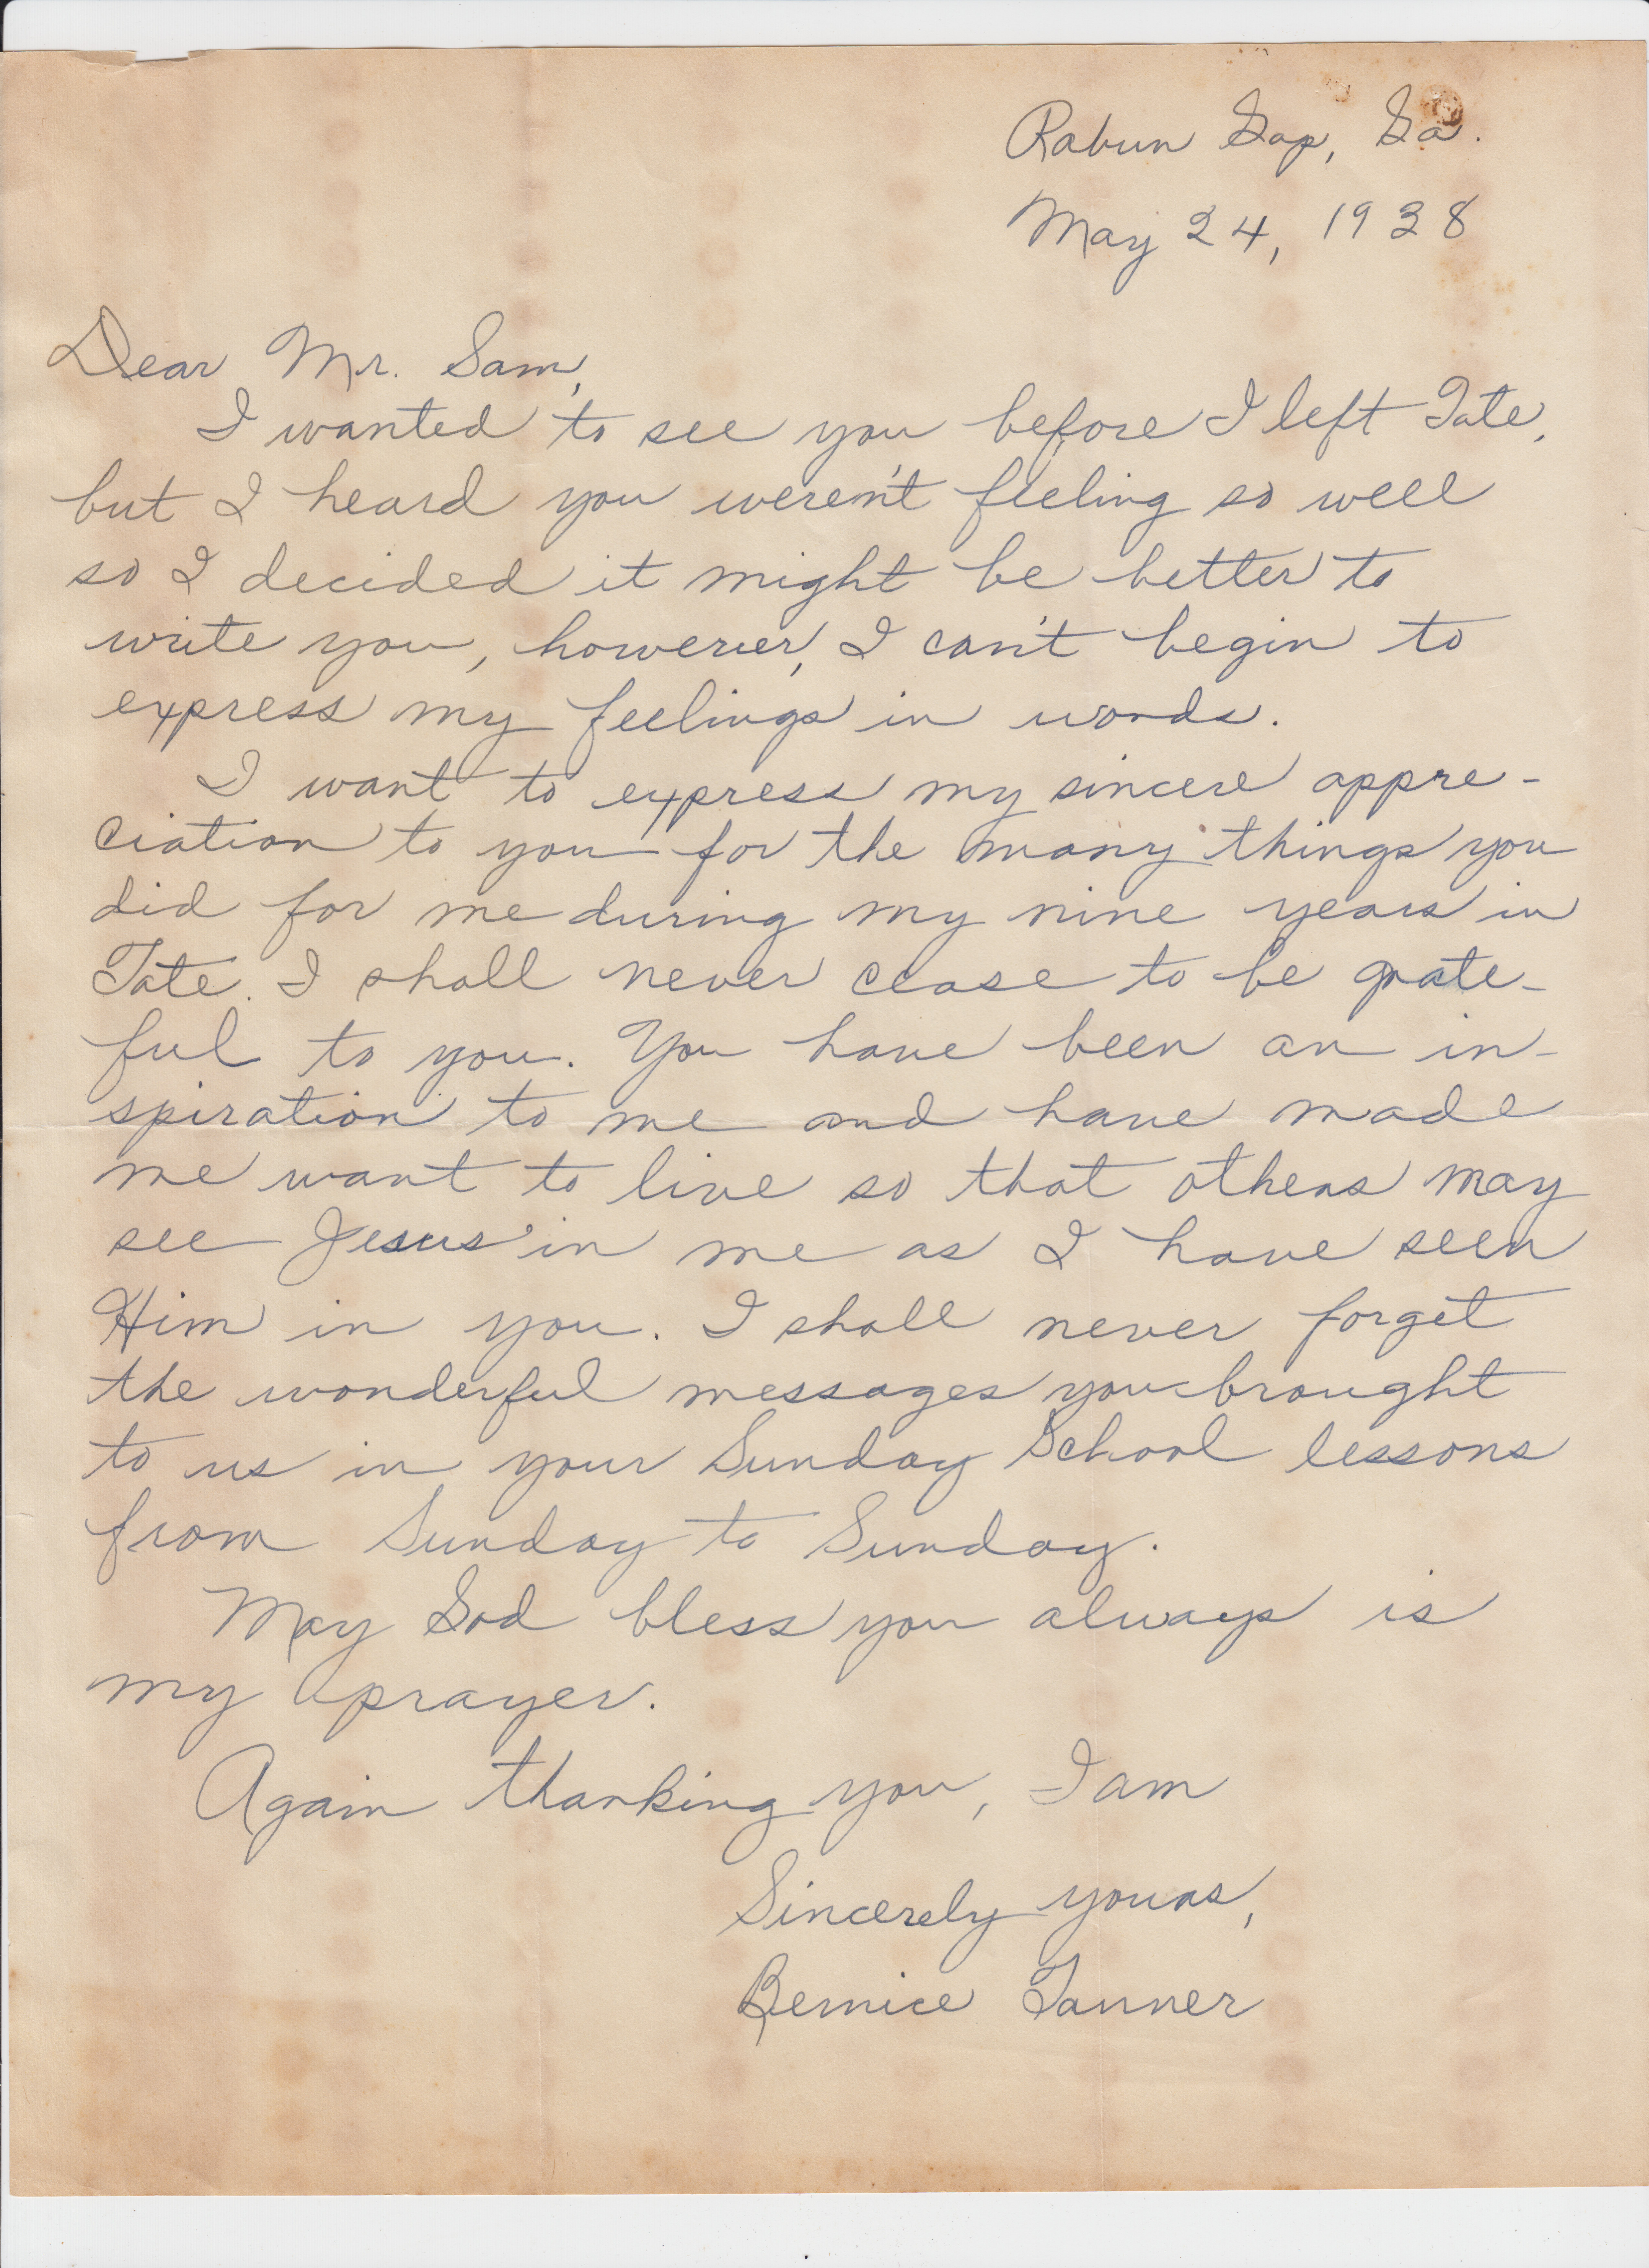 Rabun Gap, Ga.
May 24, 1938
Dear Mr. Sam,
I wanted to see you before I left Tate,
but I heard you weren't feeling so well
so I decided it might be better to
write you, however, I can't begin to
express my feelings in words.
I want to express my sincere appre-
ciation to you for the many things you
did for me during my nine years in
Tate. I shall never cease to be grate-
ful to you. You have been an in-
spiration to me and have made
me want to live so that others may
see Jesus in me as I have seen
Him in you. I shall never forget
the wonderful messages you brought
to us in your Sunday School lessons
from Sunday to Sunday.
May God bless you always is
my prayer.
Again thanking you, I am
Sincerely yours,
Bernice Tanner